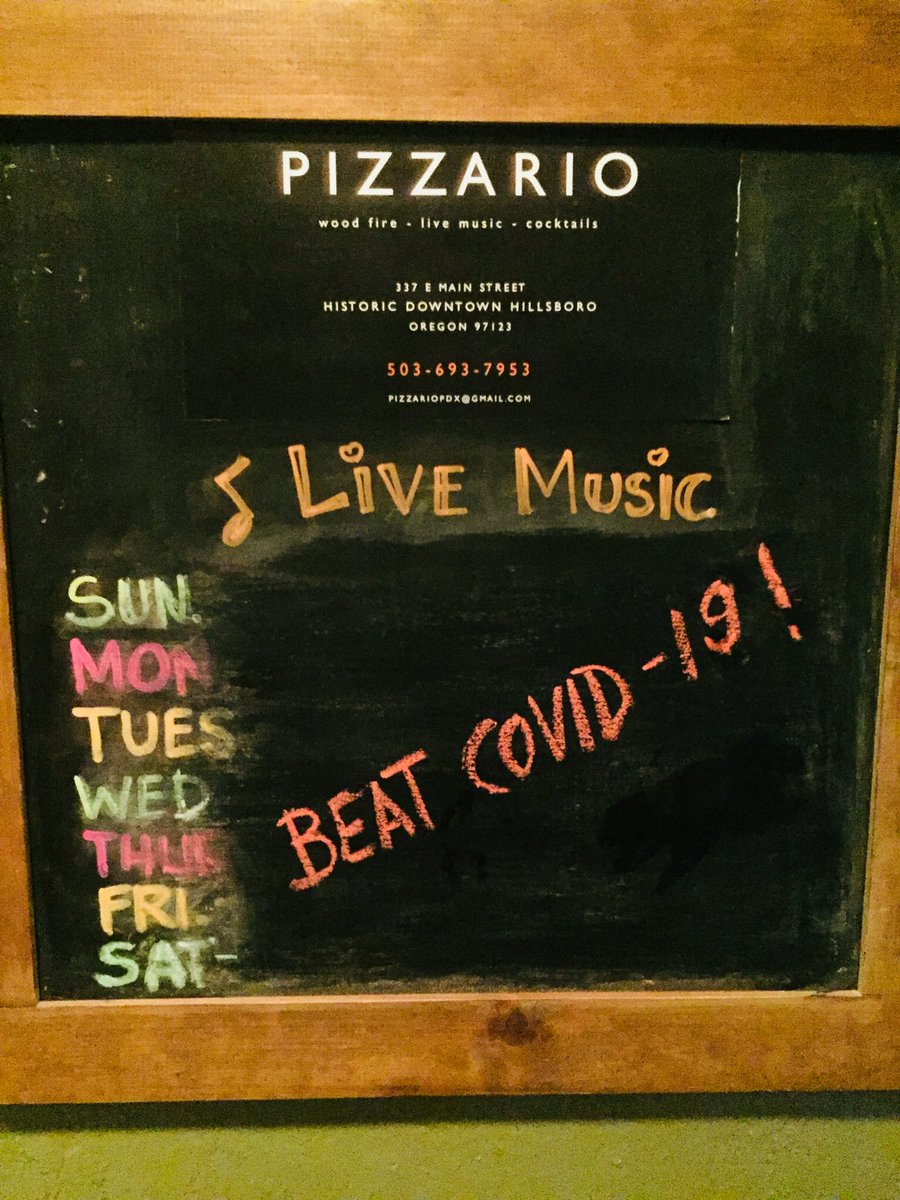 PIZZARIO
wood fire - live music - cocktails
337 E MAIN STREET
HISTORIC DOWNTOWN HILLSBORO
OREGON 97123
503-693-7953
PIZZARIOPDX@GMAIL.COM
♪ LiVE MUSiC
SUN.
MON
TUES
WED
THUR
FRI.
SAT-
BEAT COVID-19!